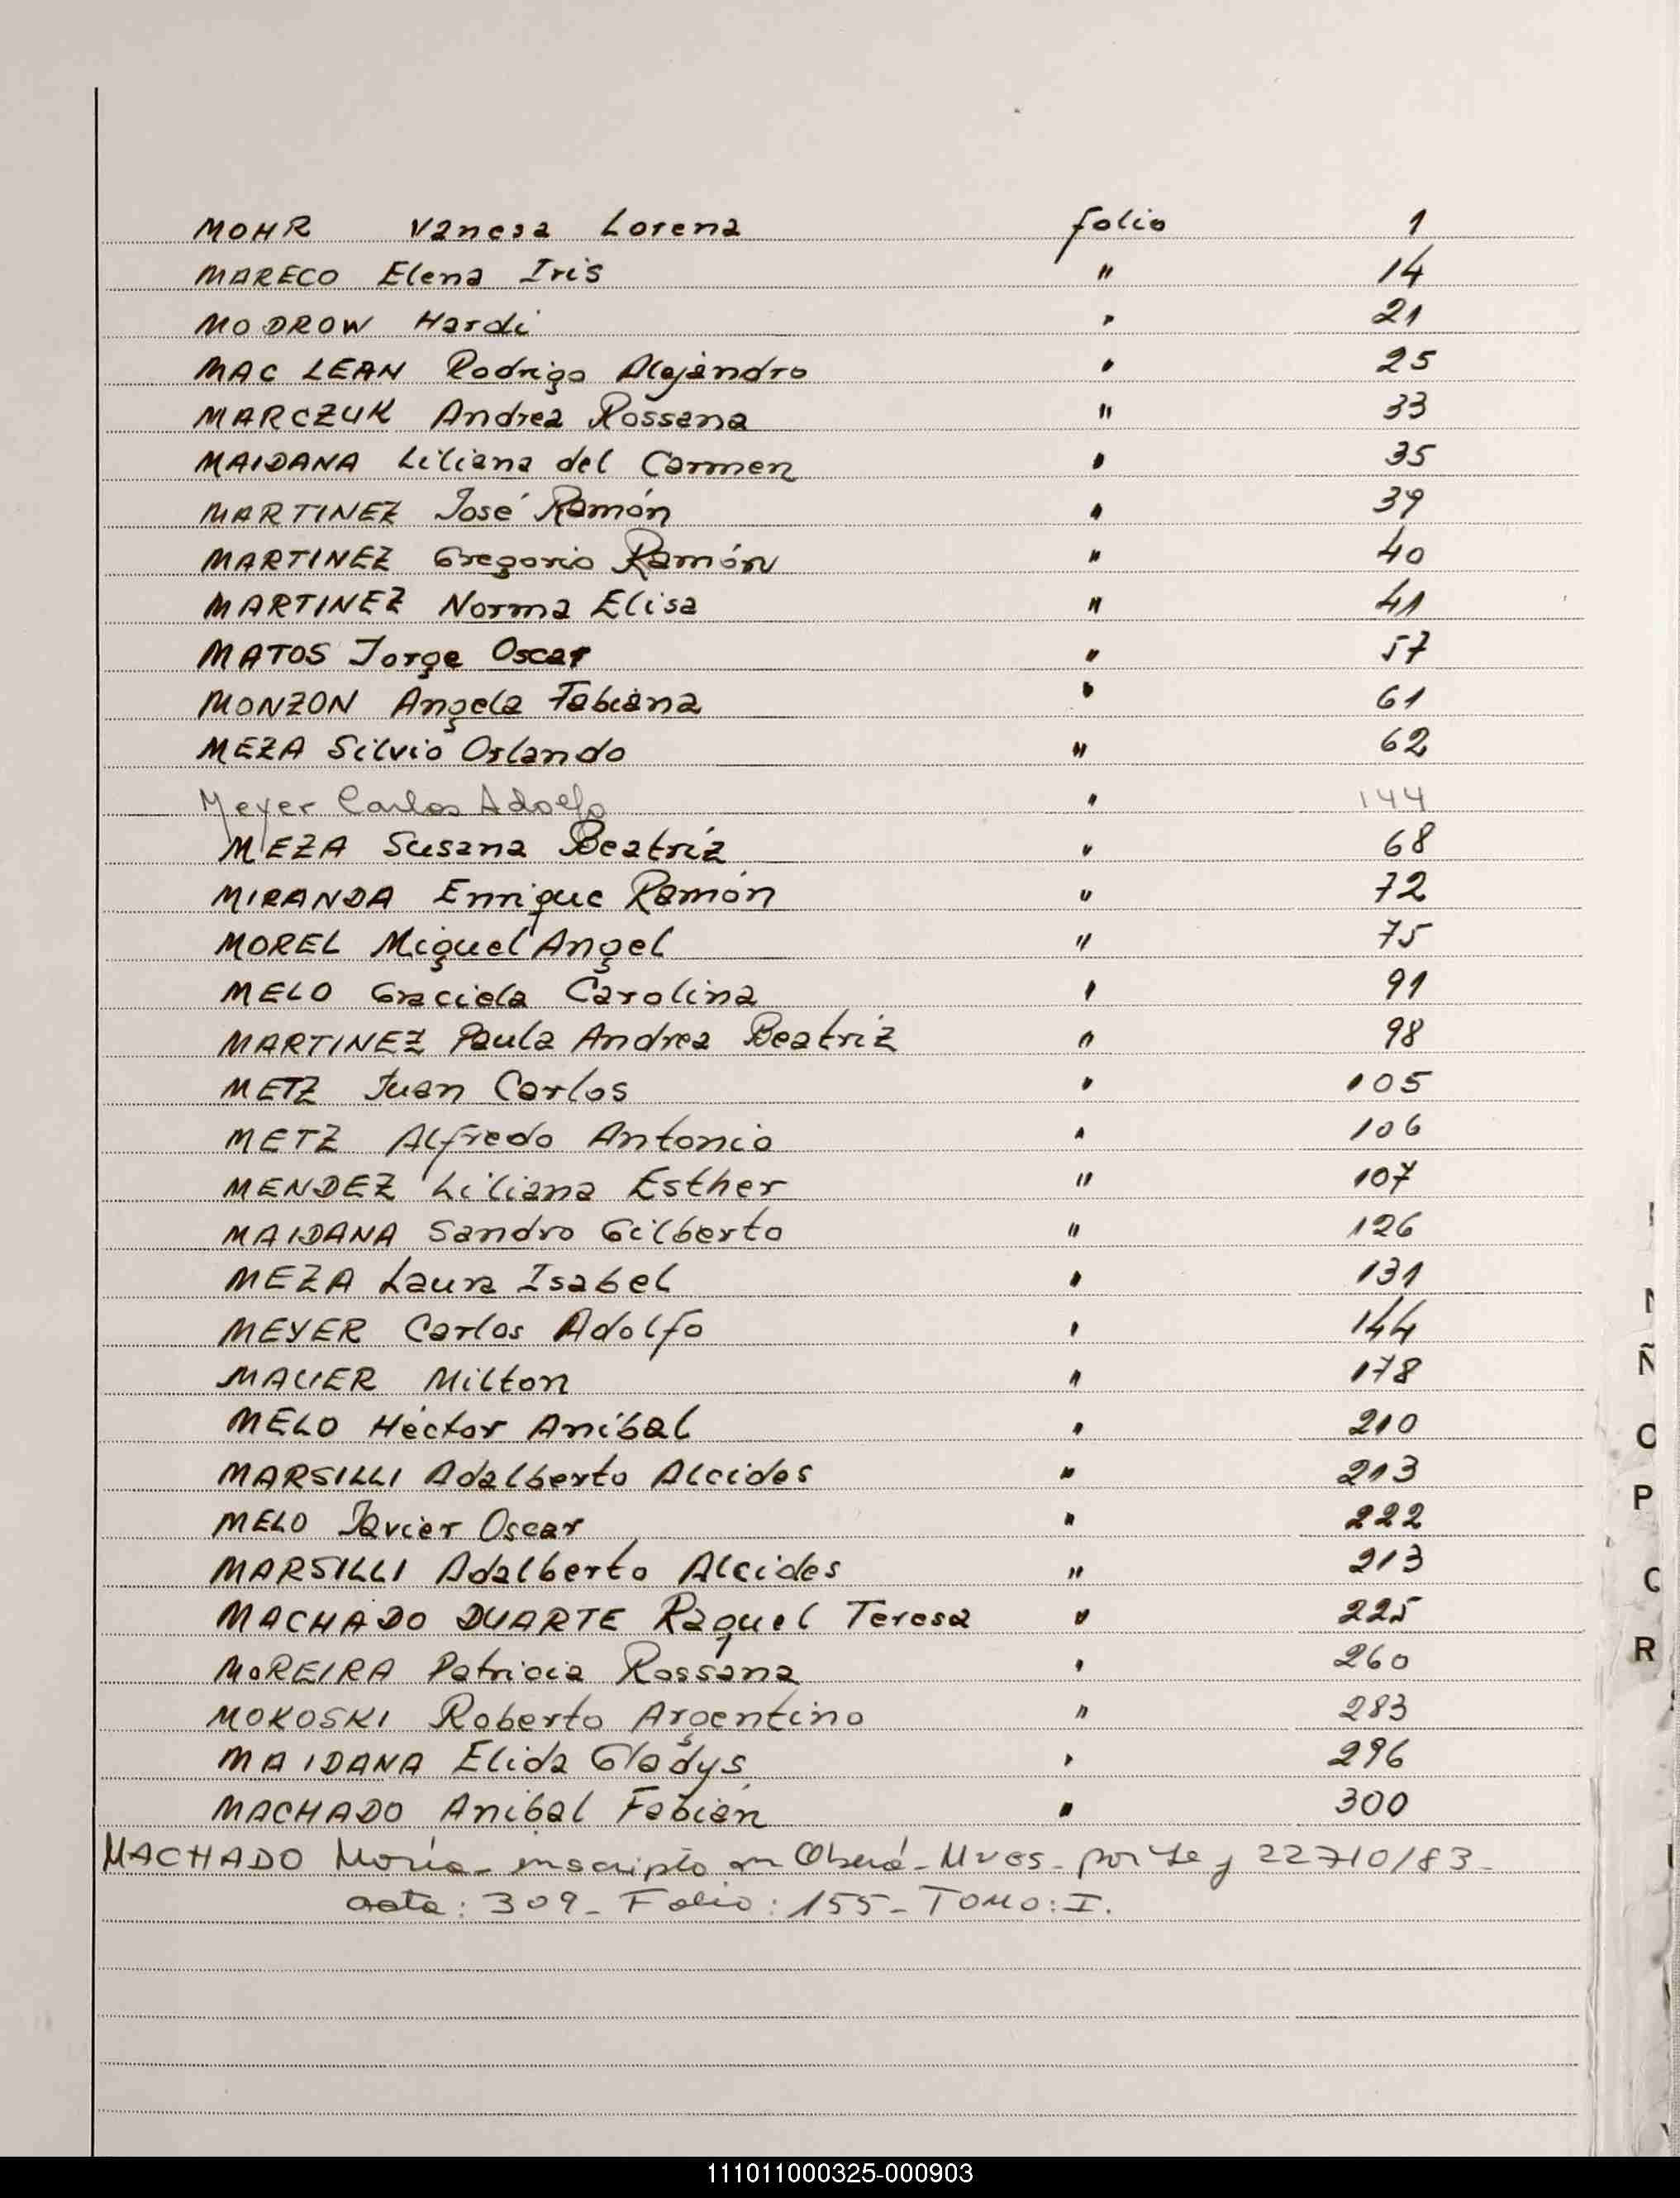 MOHR Vanesa Lorena folio 1
MARECO Elena Iris " 14
MODROW Hardi " 21
MAC LEAN Rodrigo Alejandro " 25
MARCZUK Andrea Rossana " 33
MAIDANA Liliana del Carmen " 35
MARTINEZ José Ramón " 39
MARTINEZ Gregorio Ramón " 40
MARTINEZ Norma Elisa " 41
MATOS Jorge Oscar " 57
MONZON Angela Fabiana " 61
MEZA Silvio Orlando " 62
Meyer Carlos Adolfo " 144
MEZA Susana Beatriz " 68
MIRANDA Enrique Ramón " 72
MOREL Miguel Angel " 75
MELO Graciela Carolina " 91
MARTINEZ Paula Andrea Beatriz " 98
METZ Juan Carlos " 105
METZ Alfredo Antonio " 106
MENDEZ Liliana Esther " 107
MAIDANA Sandro Gilberto " 126
MEZA Laura Isabel " 131
MEYER Carlos Adolfo " 144
MAUER Milton " 178
MELO Héctor Anibal " 210
MARSILLI Adalberto Alcides " 213
MELO Javier Oscar " 222
MARSILLI Adalberto Alcides " 213
MACHADO DUARTE Raquel Teresa " 225
MOREIRA Patricia Rossana " 260
MOKOSKI Roberto Argentino " 283
MAIDANA Elida Gladys " 296
MACHADO Anibal Fabián " 300
MACHADO María - inscripto en Oberá - Mnes - por Ley 22710/83 -
acta: 309 - Folio: 155 - TOMO: I.
Ñ
O
P
R
111011000325-000903